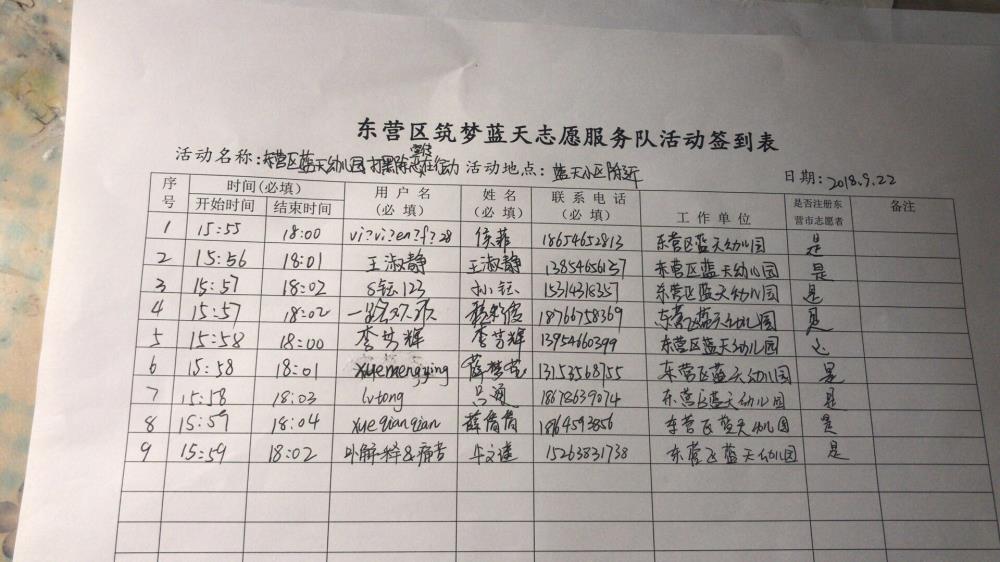 东营区筑梦蓝天志愿服务队活动签到表
活动名称:东营区蓝天幼儿园打黑除恶宣传在行动 活动地点:蓝天小区附近 日期:2018.9.22
序号 时间(必填) 用户名(必填) 姓名(必填) 联系电话(必填) 工作单位 是否注册东营市志愿者 备注
开始时间 结束时间
1 15:55 18:00 vi?vi?en?f?28 侯菲 18654652813 东营区蓝天幼儿园 是
2 15:56 18:01 王淑静 王淑静 13854656137 东营区蓝天幼儿园 是
3 15:57 18:02 123 孙 15314318357 东营区蓝天幼儿园 是
4 15:57 18:02 一路欢 18766758369 东营区蓝天幼儿园 是
5 15:58 18:00 李芳辉 李芳辉 13954660399 东营区蓝天幼儿园
6 15:58 18:01 xuemengying 薛梦莹 13153568755 东营区蓝天幼儿园 是
7 15:58 18:03 lvtong 吕通 18678639074 东营区蓝天幼儿园 是
8 15:59 18:04 xueqianqian 薛倩倩 18764593856 东营区蓝天幼儿园 是
9 15:59 18:02 解释&痛苦 牛文 15263831738 东营区蓝天幼儿园 是